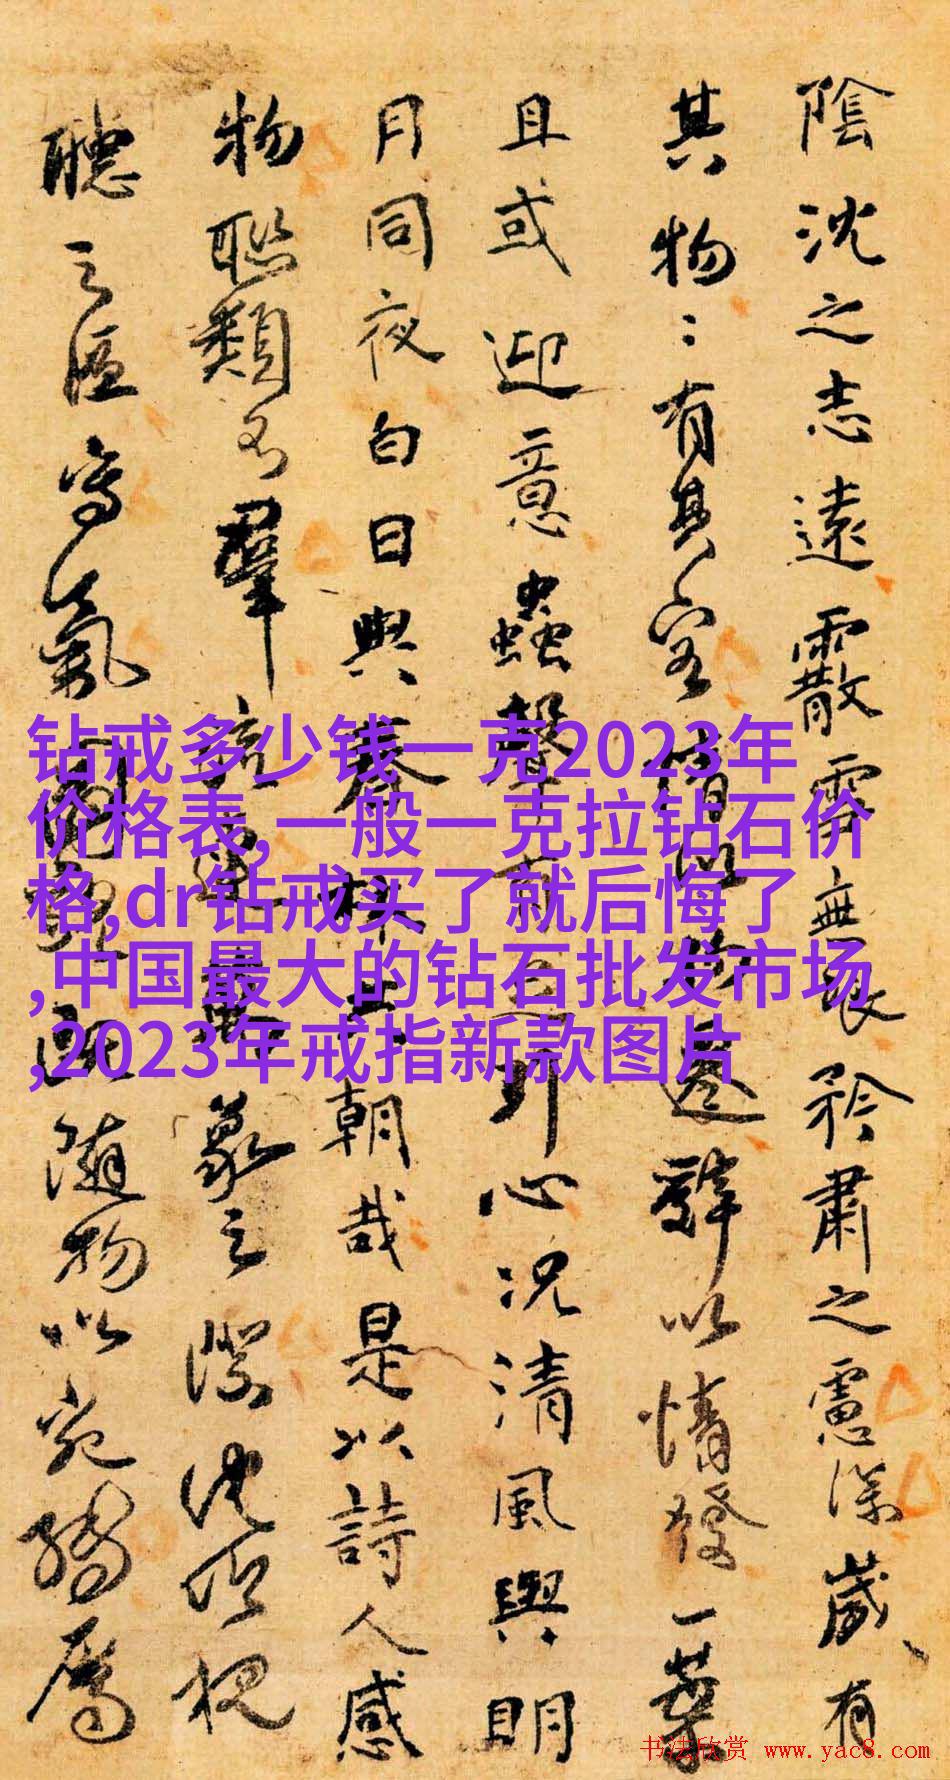 陰沈之志遠霰雪無垠矜肅之慮深歲有
其物〻有其容情以物遷辭以情發一葉
且或迎意蟲聲有足引心況清風與明
月同夜白日與春林共朝哉是以詩人感
物聯類不窮流連万象之際沈吟視
聽之區寫氣圖皃既随物以宛轉属
钻戒多少钱一克2023年
价格表,一般一克拉钻石价
格,dr钻戒买了就后悔了
,中国最大的钻石批发市场
,2023年戒指新款图片
书法欣赏 www.yac8.com